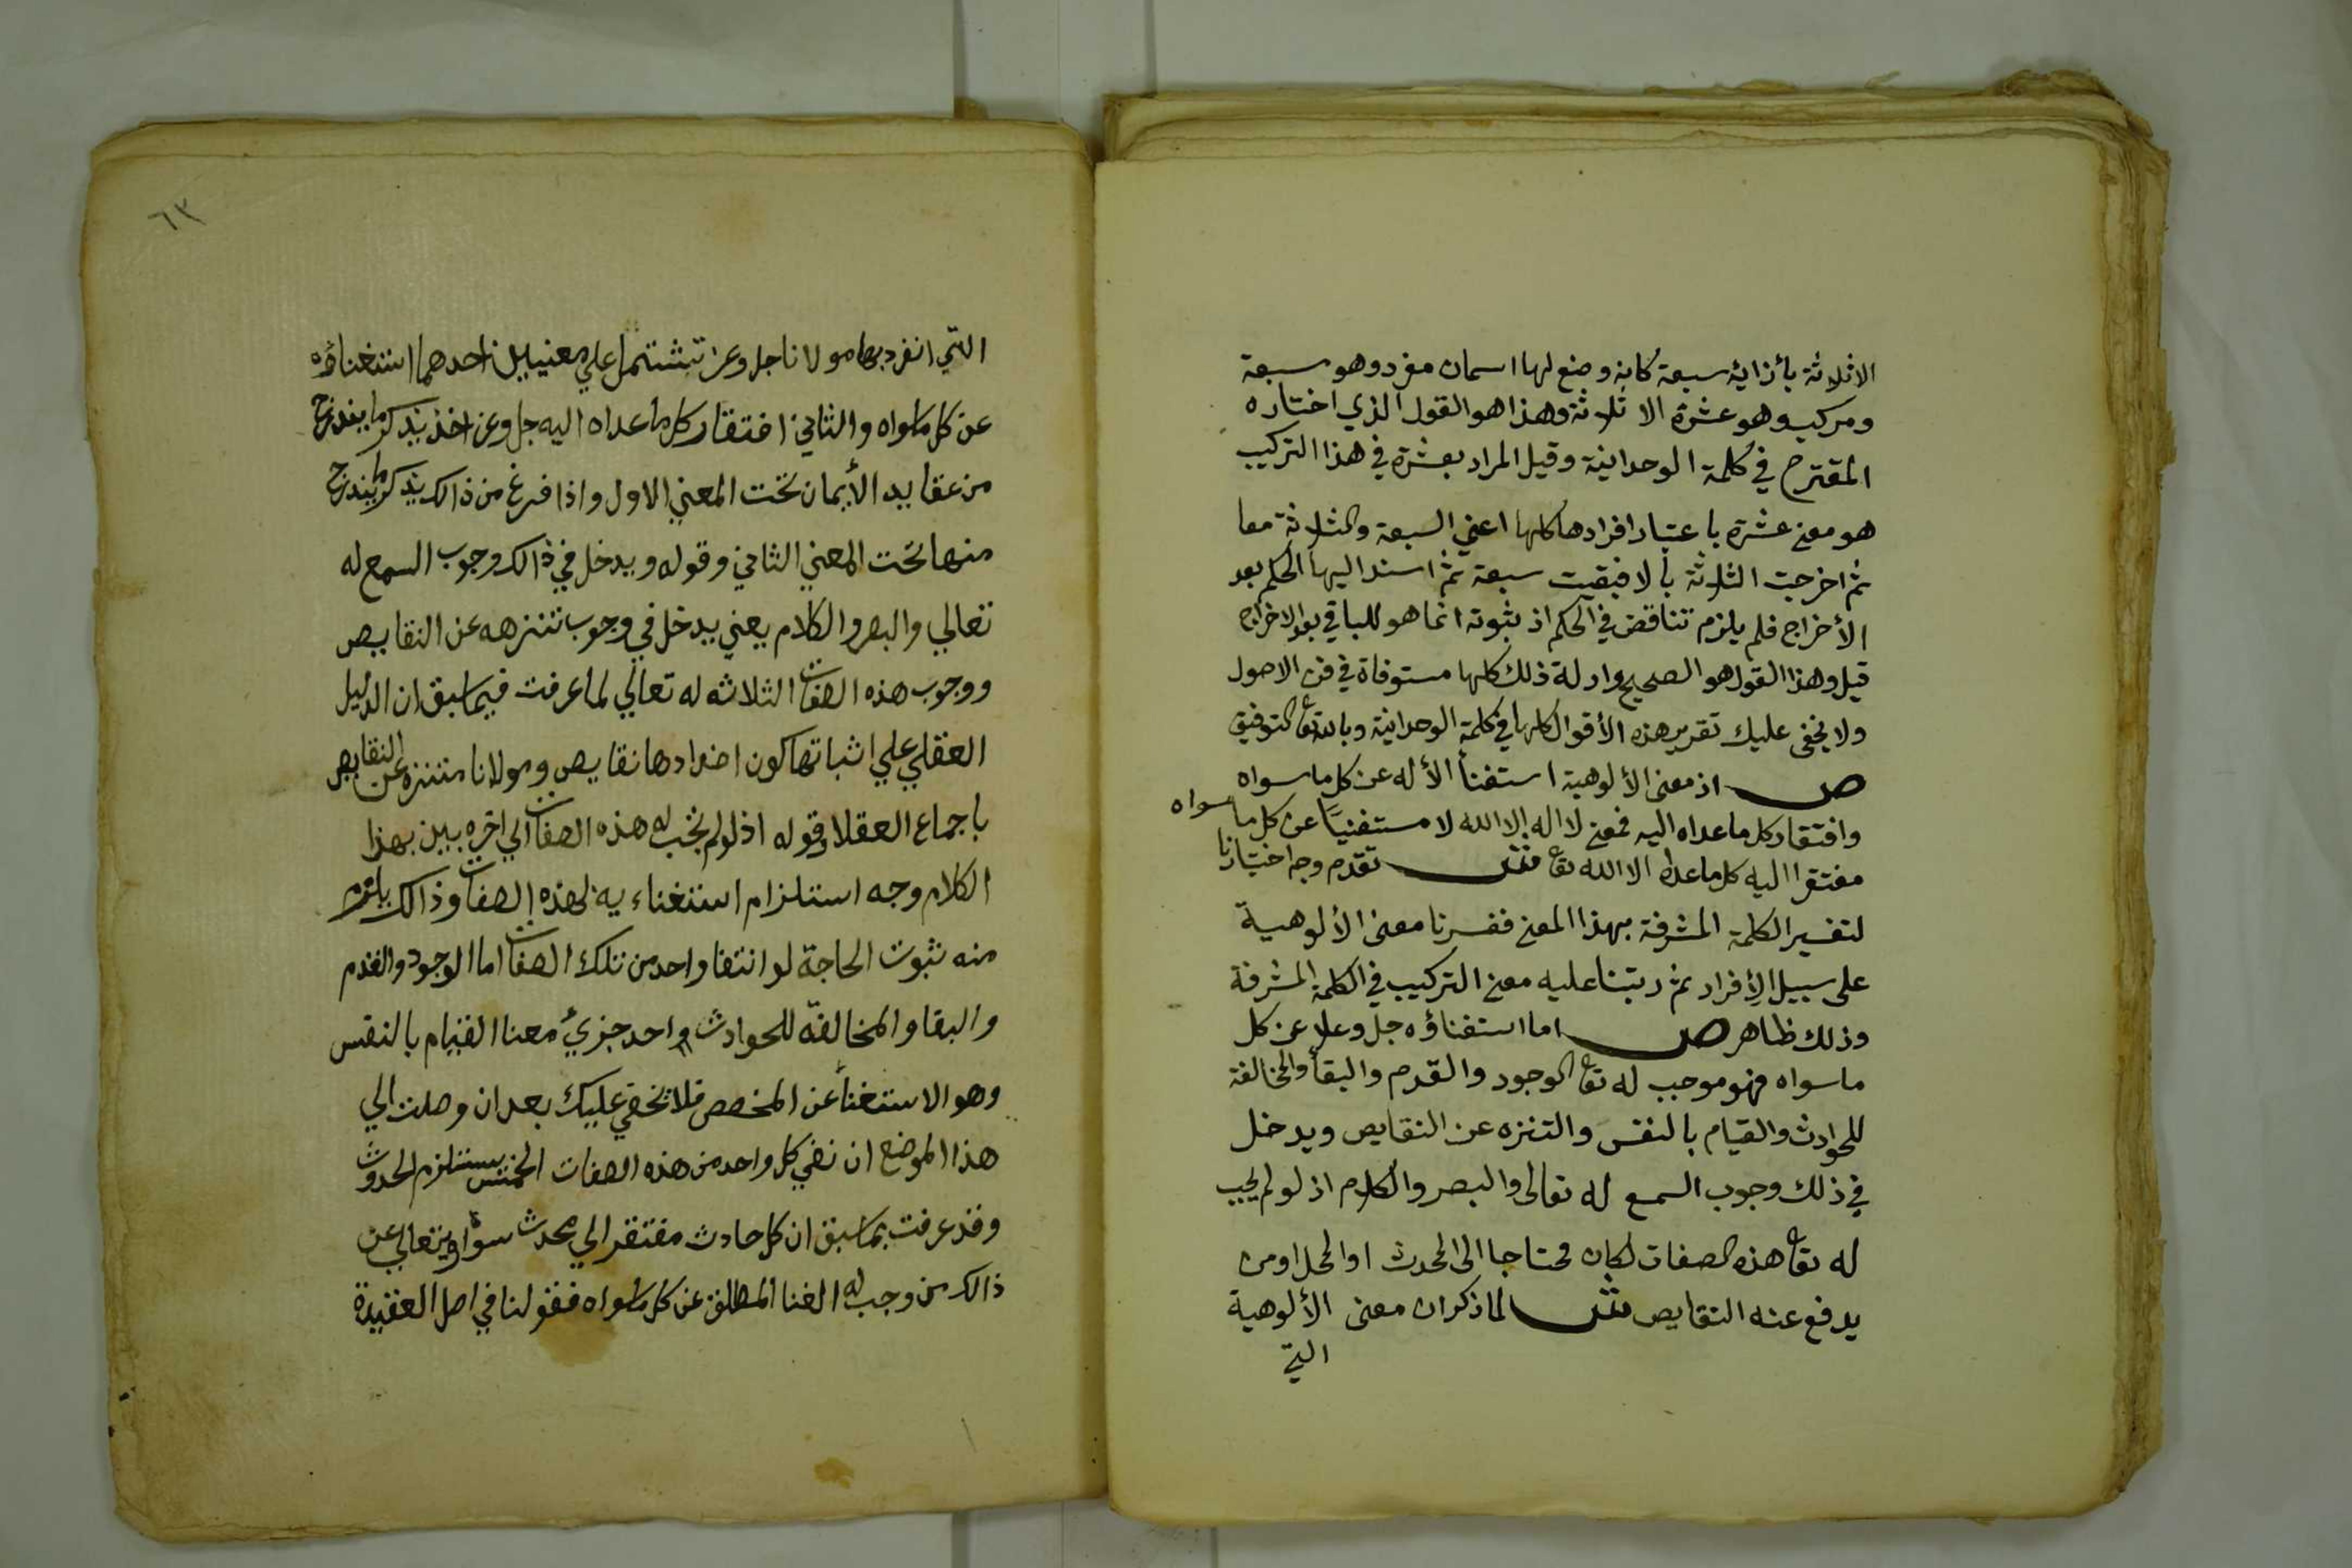 الاثلاثة بأزاية سبعة كانه وضع لها اسمان مفرد وهو سبعة
ومركب وهو عشرة الا ثلاثة وهذا هو القول الذي اختاره
المقترح في كلمة الوحدانية وقيل المراد بعشرة في هذا التركيب
هو معنى عشرة باعتبار افرادها كلها اعني السبعة والثلاثة معا
ثم اخرجت الثلاثة بألا فبقيت سبعة ثم اسند اليها الحكم بعد
الأخراج فلم يلزم تناقض في الحكم اذ ثبوته انما هو للباقي بعد الاخراج
قيل وهذا القول هو الصحيح وادلة ذلك كلها مستوفاة في فن الاصول
ولا يخفى عليك تقرير هذه الأقوال كلها في كلمة الوحدانية وبالله تعا التوفيق
ص اذ معنى الألوهية استغنأ الأله عن كل ما سواه
وافتقار كل ما عداه اليه فمعنى لا اله الا الله لا مستغنيًا عن كل ما سواه
مفتقرا اليه كل ما عداه الا الله تعا ش تقدم وجه اختيارنا
لتفسير الكلمة المشرفة بهذا المعنى ففسرنا معنى الألوهية
على سبيل الأفراد ثم رتبنا عليه معنى التركيب في الكلمة المشرفة
وذلك ظاهر ص اما استغناؤه جل وعلا عن كل
ما سواه فهو موجب له تعا الوجود والقدم والبقأ والمخالفة
للحوادث والقيام بالنفس والتنزه عن النقايص ويدخل
في ذلك وجوب السمع له تعالى والبصر والكلام اذ لو لم يجب
له تعا هذه الصفات لكان محتاجا الى المحدث او المحل او من
يدفع عنه النقايص ش لما ذكر ان معنى الألوهية
التي
٦٣
التي انفرد بها مولانا جل وعز تشتمل علي معنيين احدهما استغناؤه
عن كل ما سواه والثاني افتقار كل ما عداه اليه جل وعز اخذ يذكر ما يندرج
من عقايد الأيمان تحت المعني الاول واذا فرغ من ذالك يذكر ما يندرج
منها تحت المعني الثاني وقوله ويدخل في ذالك وجوب السمع له
تعالي والبصر والكلام يعني يدخل في وجوب تنزهه عن النقايص
ووجوب هذه الصفات الثلاثه له تعالي لما عرفت فيما سبق ان الدليل
العقلي علي اثباتها كون اضدادها نقايص ومولانا متنزه عن النقايص
باجماع العقلا وقوله اذ لو لم تجب له هذه الصفات الي اخره يبين بهذا
الكلام وجه استلزام استغناءيه لهذه الصفات وذالك يلزم
منه ثبوت الحاجة لو انتفا واحد من تلك الصفات اما الوجود والقدم
والبقا والمخالفة للحوادث واحد جزيُ معنا القيام بالنفس
وهو الاستغنأ عن المخصص فلا تخفي عليك بعد ان وصلت الي
هذا الموضع ان نفي كل واحد من هذه الصفات الخمس يستلزم الحدوث
وقد عرفت بما سبق ان كل حادث مفتقر الي محدث سواه ويتعالي عن
ذالك من وجب له الغنا المطلق عن كل ما سواه فقولنا في اصل العقيدة